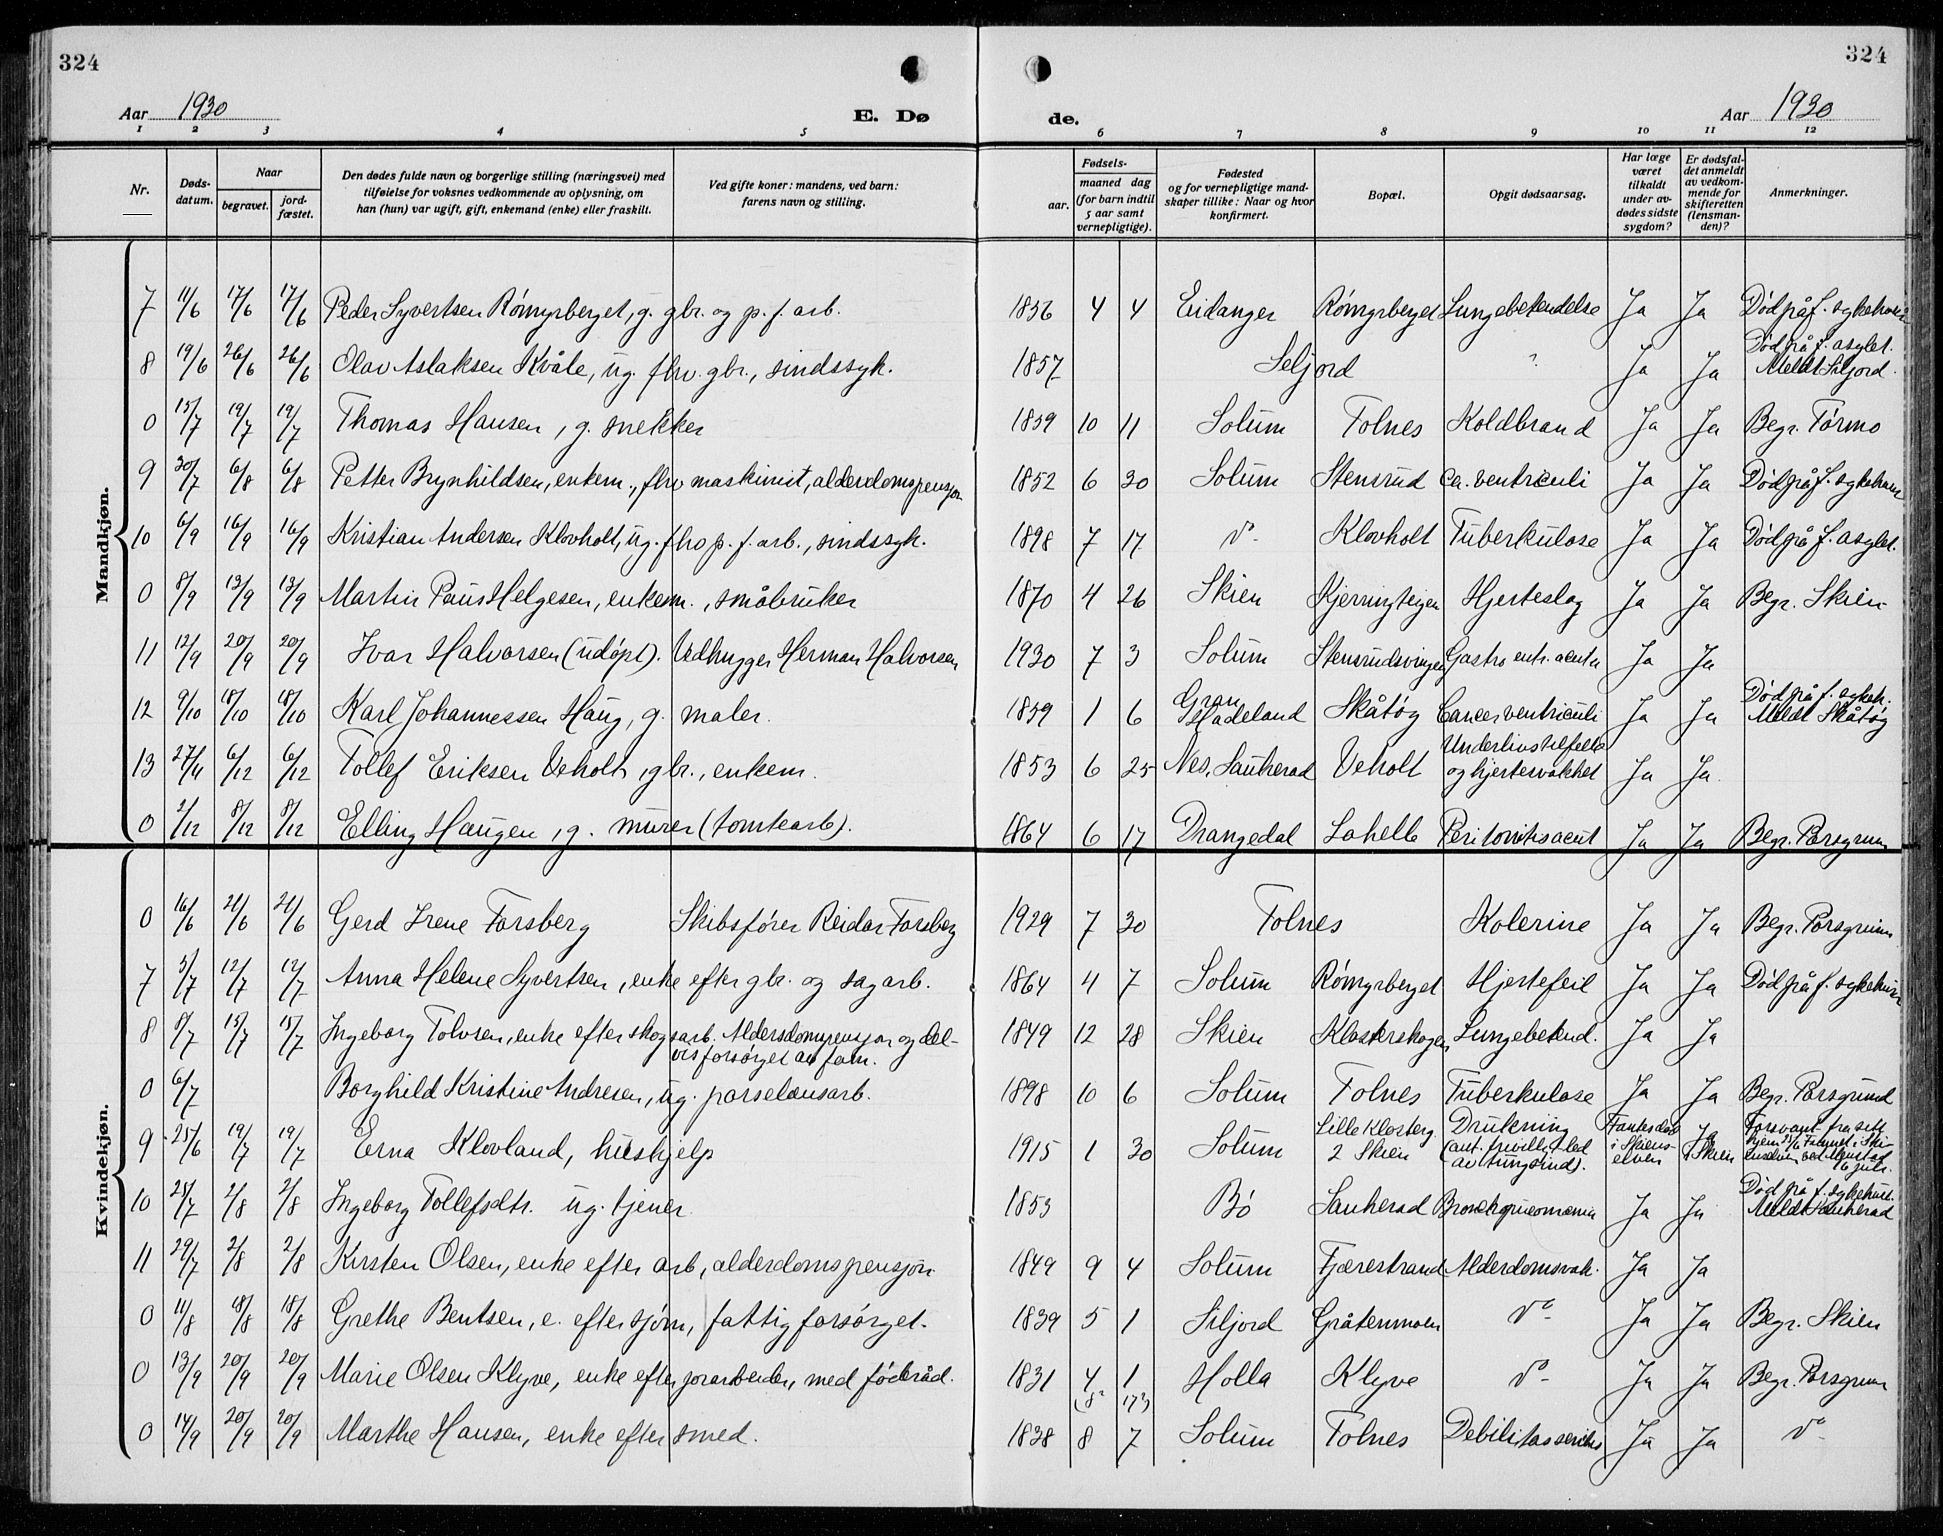 324
324
Aar 1930
E. Dø
de.
Aar 1930
1 2 3 4 5 6 7 8 9 10 11 12
Nr. Døds-datum. Naar begravet. jord-fæstet. Den dødes fulde navn og borgerlige stilling (næringsvei) med tilføielse for voksnes vedkommende av oplysning, om han (hun) var ugift, gift, enkemand (enke) eller fraskilt. Ved gifte koner: mandens, ved barn: farens navn og stilling. Fødsels- aar. maaned dag (for barn indtil 5 aar samt vernepligtige). Fødested og for vernepligtige mand-skaper tillike: Naar og hvor konfirmert. Bopæl. Opgit dødsaarsag. Har læge været tilkaldt under av-dødes sidste sygdom? Er dødsfal-det anmeldt av vedkom-mende for skifteretten (lensman-den)? Anmerkninger.
Mandkjøn.
7 11/6 17/6 17/6 Peder Syvertsen Rómyrberget, g. gbr. og p. f. arb. 1856 4 4 Eidanger Rómyrberget Lungebetendelse Ja Ja Død på f. sykehuset
8 19/6 26/6 26/6 Olav Aslaksen Kvåle, ug. fhv. gbr., sindssyk. 1857 Seljord ? Ja Ja Død på f. asylet. Meldt Siljord.
0 15/7 19/7 19/7 Thomas Hansen, g. snekker 1859 10 11 Solum Tolnes Koldbrand Ja Ja Begr. Førmo
9 30/7 6/8 6/8 Petter Brynhildsen, enkem., fhv maskinist, alderdomspensjon 1852 6 30 Solum Stensrud Ca. ventriculi Ja Ja Død på f. sykehuset
10 6/9 16/9 16/9 Kristian Andersen Klovholt, ug. fhv p. f. arb., sindssyk. 1898 7 17 d° Klovholt Tuberkulose Ja Ja Død på f. asylet.
0 8/9 13/9 13/9 Martin Paus Helgesen, enkem., småbruker 1870 4 26 Skien Kjerringteigen Hjerteslag Ja Ja Begr. Skien
11 12/9 20/9 20/9 Ivar Halvorsen (udópt). Vedhugger Herman Halvorsen 1930 7 3 Solum Stensrudsvingen Gastro entr. acuta Ja Ja
12 9/10 18/10 18/10 Karl Johannessen Haug, g. maler. 1859 1 6 Gran Hadeland Skåtøy Cancer ventriculi Ja Ja Død på f. sykeh. Meldt Skåtøy
13 27/11 6/12 6/12 Tollef Eriksen Veholt, gbr., enkem. 1853 6 25 Nes, Sauherad Veholt Underlivstilfelle og hjertesvakhet Ja Ja.
0 2/12 8/12 8/12 Elling Haugen, g. murer (tomtearb). 1864 6 17 Drangedal Lahelle Peritonitis acut Ja Ja Begr. Porsgrunn
Kvindekjøn.
0 16/6 21/6 21/6 Gerd Irene Forsberg Skibsfører Reidar Forsberg 1929 7 30 Tolnes Kolerine Ja Ja Begr. Porsgrunn
7 5/7 12/7 12/7 Anna Helene Syvertsen, enke efter gbr. og sagarb. 1864 4 7 Solum Rómyrberget Hjertefeil Ja Ja Død på f. sykehuset
8 8/7 15/7 15/7 Ingeborg Tolvsen, enke efter skogsarb. Alderdomspensjon og del-vis forsørget av fam. 1849 12 28 Skien Klosterskogen Lungebetend. Ja Ja
0 6/7 Borghild Kristine Andresen, ug. porselensarb. 1898 10 6 Solum Tolnes Tuberkulose Ja Ja Begr. Porsgrund
9 25/6 19/7 19/7 Erna Klovland, hushjelp 1915 1 30 Solum Lille Klosterg. 2 Skien Drukning (ant. frivillig, led av tungsind). Fantes død i Skiens-elven Ja i Skien Forsvant fra sitt hjem 25/6 Funnet i Ski-enselven ved 6 juli.
10 28/7 2/8 2/8 Ingeborg Tollefsdtr. ug. tjener 1853 Bó Sauherad Bronchopneomonia Ja Ja Død på f. sykehuset. Meldt Sauherad
11 29/7 2/8 2/8 Kirsten Olsen, enke efter arb, alderdomspensjon 1849 9 4 Solum Fjærestrand Alderdomsvak. Ja Ja
0 11/8 18/8 18/8 Grethe Bentsen, e. efter sjøm, fattigforsørget. 1839 5 1 Siljord Gråtenmoen d° Ja Ja Begr. Skien
0 13/9 20/9 20/9 Marie Olsen Klyve, enke efter jorarbeider, med føderåd. 1831 4 1 Holla Klyve d° Ja Ja Begr. Porsgrunn
(5? 17?)
0 14/9 20/9 20/9 Marthe Hansen, enke efter smed. 1838 8 7 Solum Tolnes Debilitas senilis Ja Ja d°